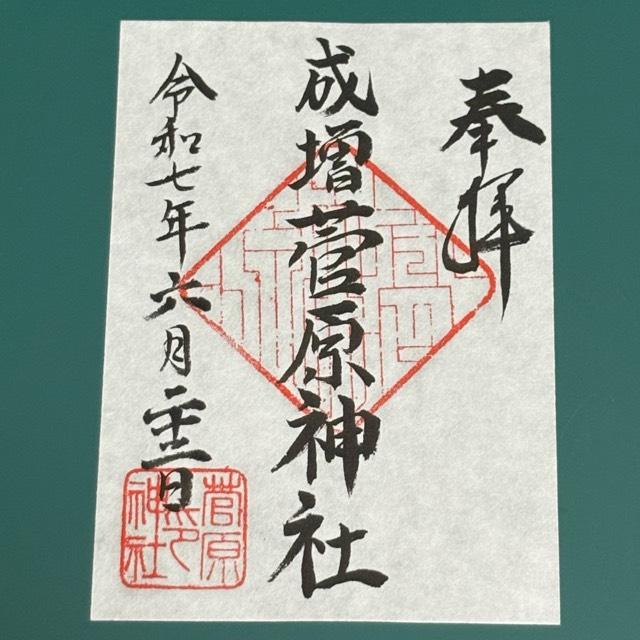 奉拝
成増菅原神社
令和七年六月二十二日
菅原
神社